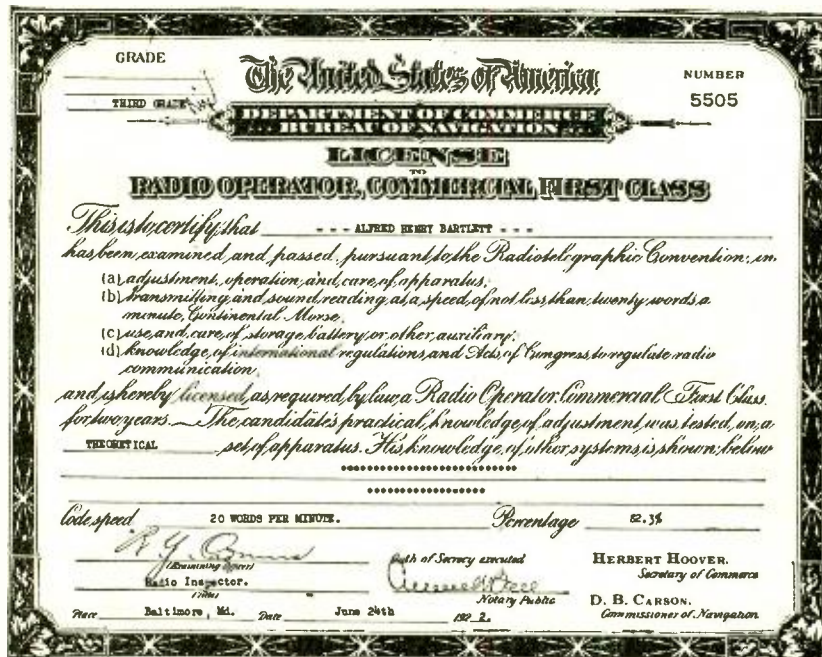 GRADE
THIRD GRADE
The United States of America,
NUMBER
5505
DEPARTMENT OF COMMERCE
BUREAU OF NAVIGATION
LICENSE
TO
RADIO OPERATOR, COMMERCIAL FIRST CLASS
This is to certify that - - - ALFRED HENRY BARTLETT - - -
has been examined and passed, pursuant to the Radiotelegraphic Convention, in
(a) adjustment, operation, and care of apparatus.
(b) transmitting and sound reading at a speed of not less than twenty words a
minute, Continental Morse.
(c) use and care of storage battery or other auxiliary.
(d) knowledge of international regulations and Acts of Congress to regulate radio
communication,
and is hereby licensed, as required by law, a Radio Operator, Commercial First Class
for two years. The candidate's practical knowledge of adjustment was tested on a
THEORETICAL set of apparatus. His knowledge of other systems is shown below
Code speed 20 WORDS PER MINUTE. Percentage 82.3%
(Examining Officer)
Radio Inspector.
(Title)
Oath of Secrecy executed
Notary Public
HERBERT HOOVER.
Secretary of Commerce
D. B. CARSON.
Commissioner of Navigation
Place Baltimore, Md. Date June 24th 192 2.